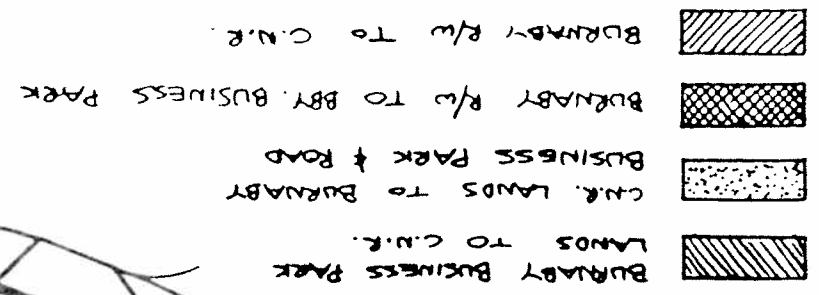 BURNABY BUSINESS PARK
LANDS TO C.N.R.
C.N.R. LANDS TO BURNABY
BUSINESS PARK & ROAD
BURNABY R/W TO BBY. BUSINESS PARK
BURNABY R/W TO C.N.R.